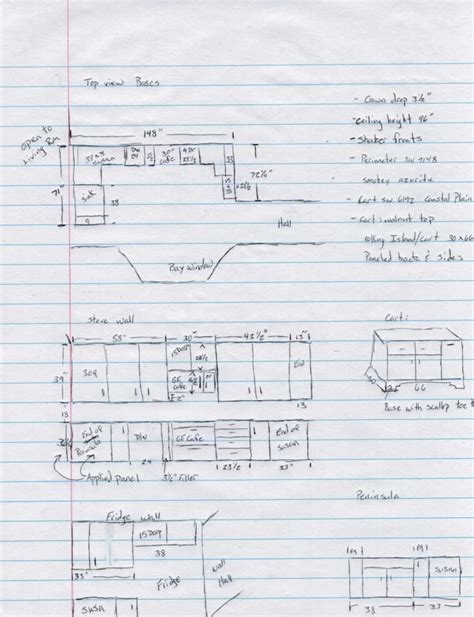 Top view Bases
- Crown drop 3½"
- ceiling height 96"
- shaker fronts
- Perimeter SW 9148
smokey azurite
- Cart SW 6192 Coastal Plain
- Cart: walnut top
rolling Island/cart 30x66
Paneled back & sides
open to
Living Rm
148"
33x33
susan
DW
24
30"
cafe
4Dr
23½
71"
sink
38
9
72½"
Hall
Bay window
stove wall
53"
30"
43½"
13"
39"
304
GE
cafe
EW
13
Cart:
66
Base with scallop toe
End of
Peninsula
DW
GE Cafe
End of
susan
24
23½
33"
Applied panel
3½" filler
Fridge wall
15Deep
38
33"
Fridge
wall
Hall
susan
Peninsula
susan
38
33